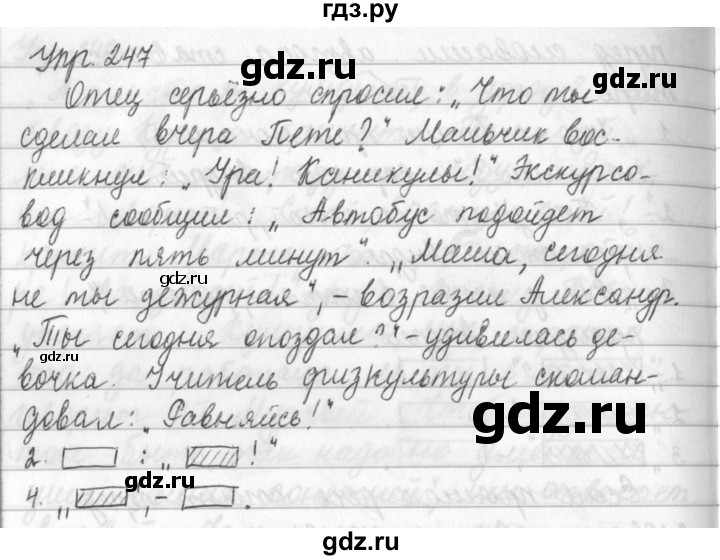 гдз.ру
Упр. 247
gdz.ru
Отец серьёзно спросил: „Что ты
сделал вчера Пете?" Мальчик вос-
кликнул: „Ура! Каникулы!" Экскурсо-
вод сообщил: „Автобус подойдет
через пять минут". „Маша, сегодня
не ты дежурная", – возразил Александр.
„Ты сегодня опоздал?" – удивилась де-
вочка. Учитель физкультуры скоман-
довал: „Равняйсь!"
gdz.ru
2. : „ !"
4. „ ", – .
gdz.ru
gdz.ru